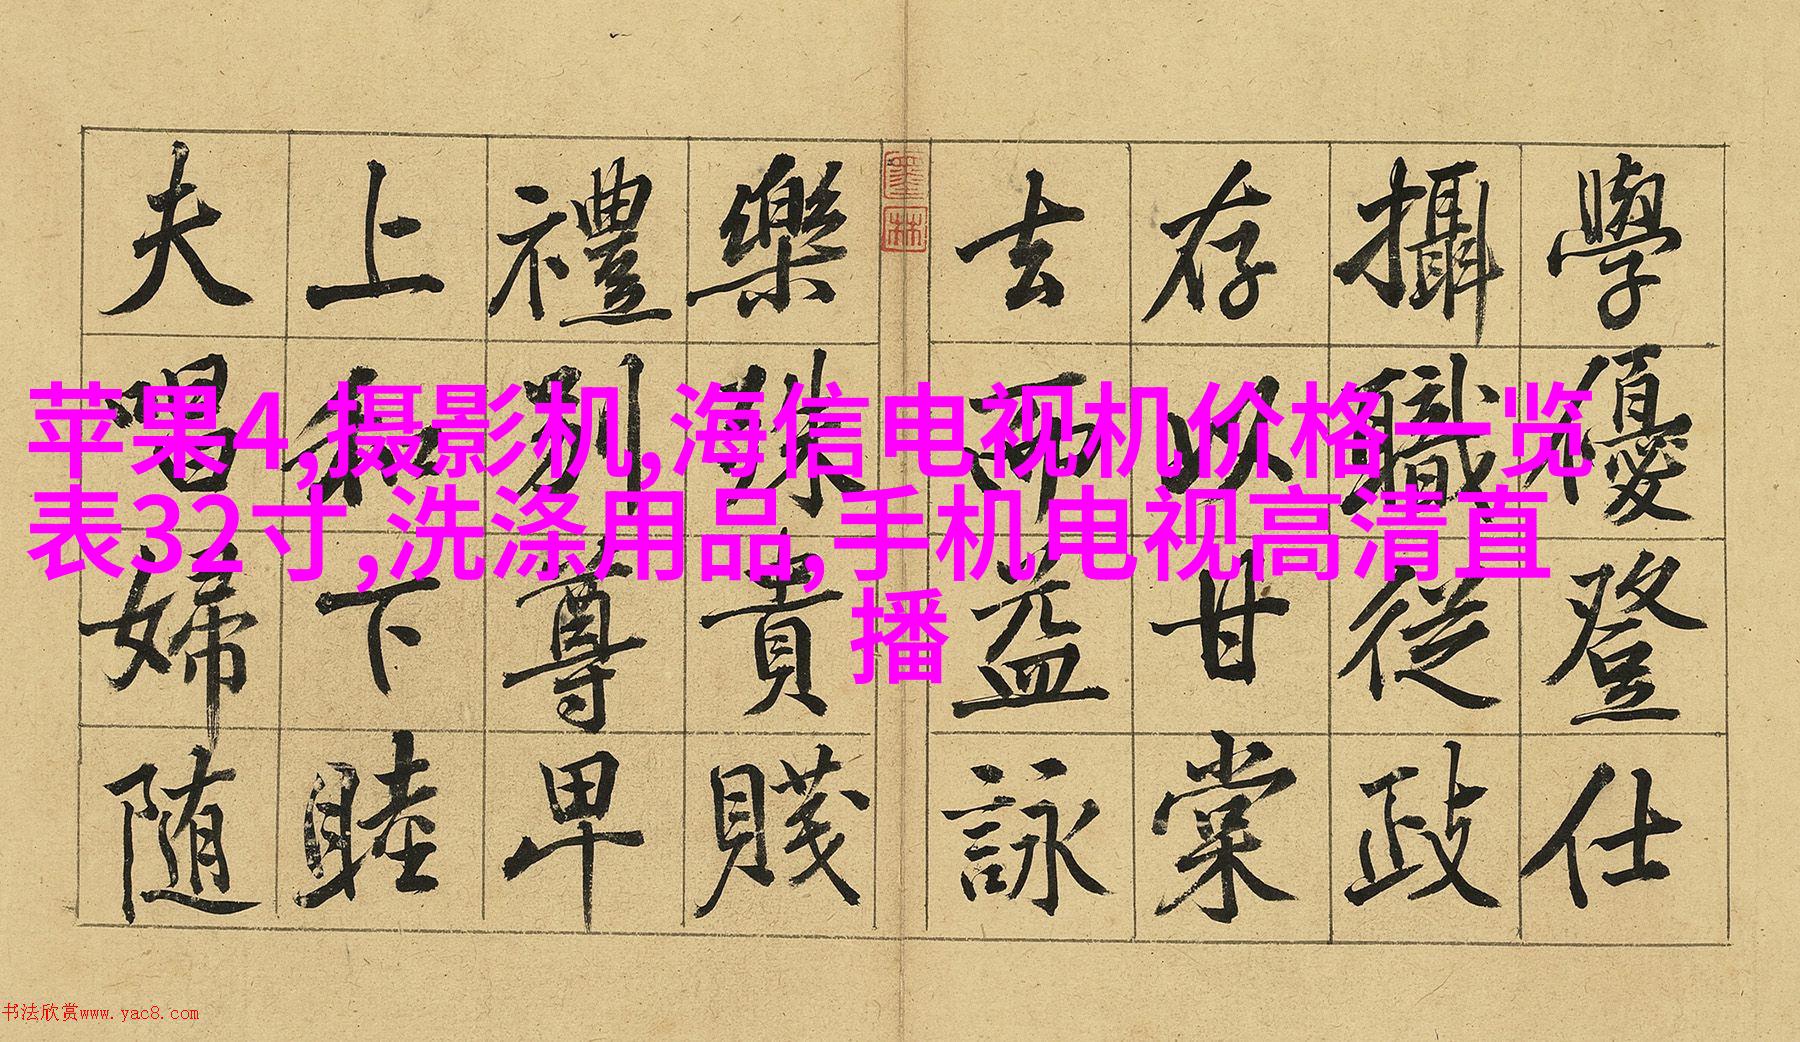 學優登仕
攝職從政
存以甘棠
去而益詠
樂殊貴賤
禮別尊卑
上和下睦
夫唱婦随
墨林
苹果4,摄影机,海信电视机价格一览
表32寸,洗涤用品,手机电视高清直
播
书法欣赏www.yac8.com